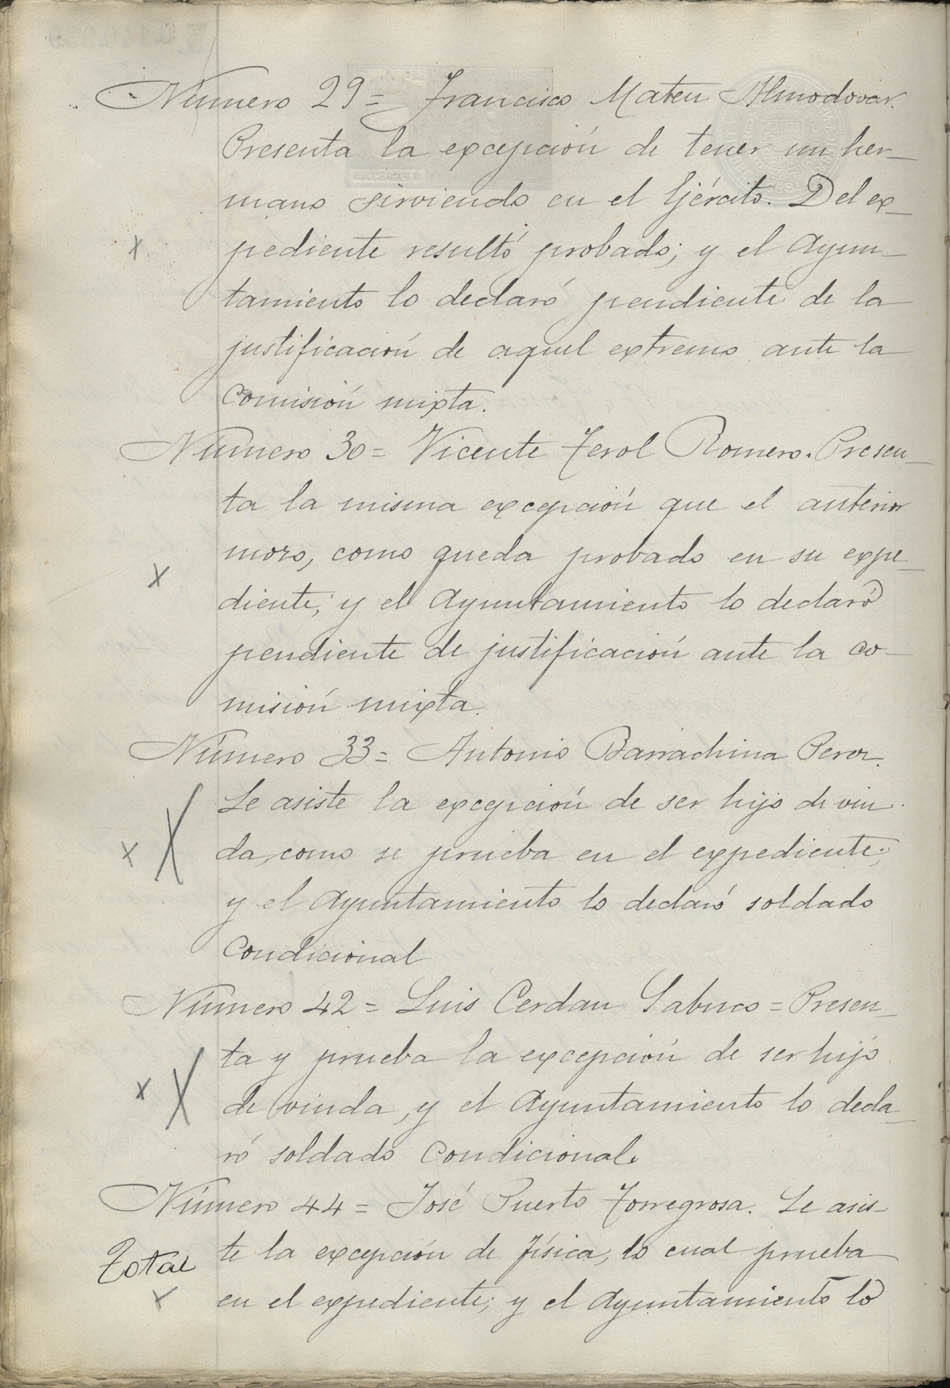 Número 29= Francisco Mateu Almodovar.
Presenta la excepción de tener un her-
mano sirviendo en el Ejército. Del ex-
pediente resultó probado; y el Ayun-
tamiento lo declaró pendiente de la
justificación de aquel extremo ante la
comisión mixta.
Número 30= Vicente Terol Romero. Presen-
ta la misma excepción que el anterior
mozo, como queda probado en su expe-
diente; y el Ayuntamiento lo declaró
pendiente de justificación ante la co-
misión mixta.
Número 33= Antonio Barrachina
Le asiste la excepción de ser hijo de viu-
da, como se prueba en el expediente;
y el Ayuntamiento lo declaró soldado
Condicional
Número 42= Luis Cerdan Sabuco = Presen-
ta y prueba la excepción de ser hijo
de viuda, y el Ayuntamiento lo decla-
ró soldado Condicional.
Número 44= José Puerto Torregrosa. Le asis-
te la excepción de física, lo cual prueba
Total
en el expediente; y el Ayuntamiento lo